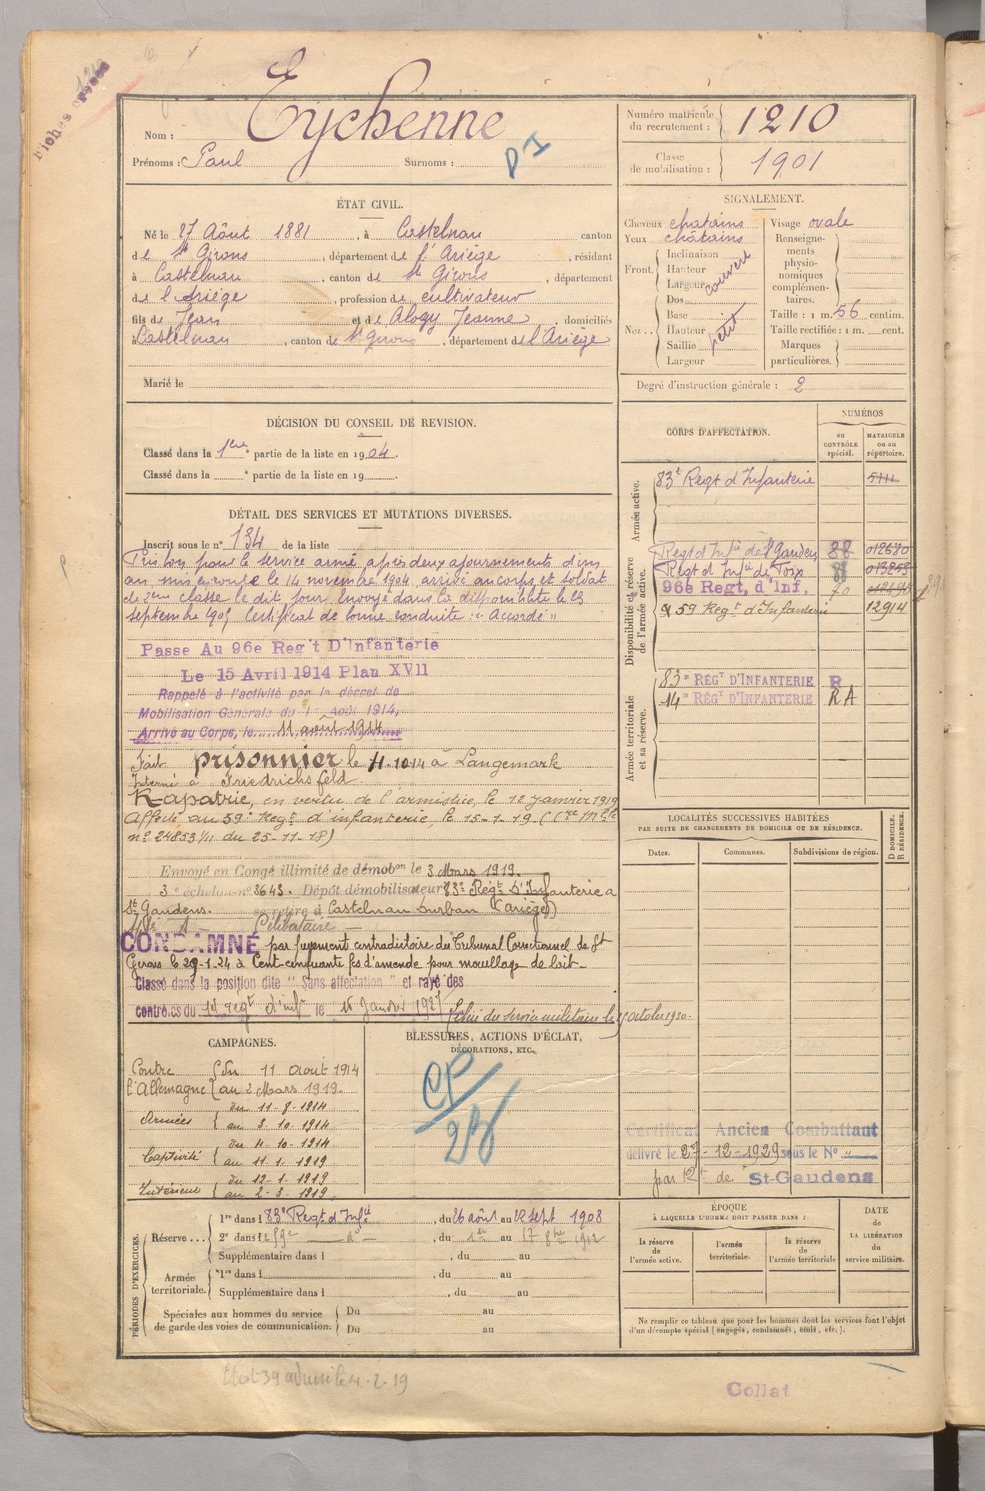 Fiches
Nom : Eychenne
Prénoms : Paul Surnoms :
P I
Numéro matricule du recrutement : 1210
Classe de mobilisation : 1901
ÉTAT CIVIL.
Né le 27 Août 1881, à Castelnau canton
de St Girons, département de l'Ariège, résidant
à Castelnau, canton de St Girons, département
de l'Ariège, profession de cultivateur
fils de Jean et de Alozy Jeanne, domiciliés
à Castelnau, canton de St Girons, département de l'Ariège
Marié le
SIGNALEMENT.
Cheveux chatains
Yeux châtains
Front. Inclinaison
Hauteur
Largeur
couvert
Nez.. Dos
Base
Hauteur
Saillie
Largeur
petit
Visage ovale
Renseignements physionomiques complémentaires.
Taille : 1 m. 56 centim.
Taille rectifiée : 1 m. cent.
Marques particulières.
Degré d'instruction générale : 2
DÉCISION DU CONSEIL DE REVISION.
Classé dans la 1ère partie de la liste en 1904.
Classé dans la e partie de la liste en 19
CORPS D'AFFECTATION.
NUMÉROS
au CONTRÔLE spécial.
MATRICULE ou au répertoire.
Armée active.
83e Regt d'Infanterie 5111
Disponibilité et réserve de l'armée active.
Regt d'Infie de St Gaudens 88 012680
Regt d'Infie de Foix 88
96e Regt, d'Inf. 70
59 Regt d'Infanterie 12914
Armée territoriale et sa réserve.
83e RÉGT D'INFANTERIE R
14e RÉGT D'INFANTERIE RA
DÉTAIL DES SERVICES ET MUTATIONS DIVERSES.
Inscrit sous le n° 134 de la liste
Pris bon pour le service armé après deux ajournements d'un
an, mis en route le 14 novembre 1904, arrivé au corps et soldat
de 2ème classe le dit jour. Envoyé dans la disponibilité le 23
septembre 1905 Certificat de bonne conduite : "Accordé"
Passe Au 96e Reg't D'Infanterie
Le 15 Avril 1914 Plan XVII
Rappelé à l'activité par le décret de
Mobilisation Générale du 1er Août 1914,
Arrivé au Corps, le 11 août 1914
Fait prisonnier le 4.10.14 à Langemark
Interné à Friedrichsfeld
Rapatrié, en vertu de l'armistice, le 12 janvier 1919
Affecté au 59e Régt d'infanterie, le 15-1-19. (Cre Mlle
n° 24853 1/11 du 25-11-18)
Envoyé en Congé illimité de démobon le 3 Mars 1919.
3e échelon n° 3643. Dépôt démobilisateur 83e Régt D'Infanterie à
St Gaudens. se retire à Castelnau Durban (Ariège)
Célibataire
CONDAMNÉ par jugement contradictoire du Tribunal Correctionnel de St
Girons le 29-1-24 à Cent-cinquante fcs d'amende pour mouillage de lait.
Classé dans la position dite "Sans affectation" et rayé des
contrôles du 14 regt d'infie le 15 Janvier 1927
Libéré du service militaire le 15 octobre 1930.
LOCALITÉS SUCCESSIVES HABITÉES
PAR SUITE DE CHANGEMENTS DE DOMICILE OU DE RÉSIDENCE.
Dates. Communes. Subdivisions de région.
D DOMICILE. R RÉSIDENCE.
CAMPAGNES.
Contre l'Allemagne du 11 août 1914
au 2 Mars 1919.
Armées du 11-8-1914
au 3.10.1914
Captivité du 4-10-1914
au 11.1.1919
Intérieur du 12-1-1919
au 2-3-1919.
BLESSURES, ACTIONS D'ÉCLAT,
DÉCORATIONS, ETC.
CP
28
Certificat Ancien Combattant
délivré le 27-12-1929 sous le N° "
par Rt de St-Gaudens
PÉRIODES D'EXERCICES.
Réserve... 1re dans l 83e Regt d'Infie, du 26 août au 12 sept 1908
2e dans l 59e do, du 1er au 17 8bre 1912
Supplémentaire dans l , du au
Armée territoriale. 1re dans l , du au
Supplémentaire dans l , du au
Spéciales aux hommes du service
de garde des voies de communication. Du au
Du au
ÉPOQUE
À LAQUELLE L'HOMME DOIT PASSER DANS :
la réserve de l'armée active.
l'armée territoriale.
la réserve de l'armée territoriale
DATE DE LA LIBÉRATION du service militaire.
Ne remplir ce tableau que pour les hommes dont les services font l'objet
d'un décompte spécial (engagés, condamnés, omis, etc.).
4-2-19
Collat